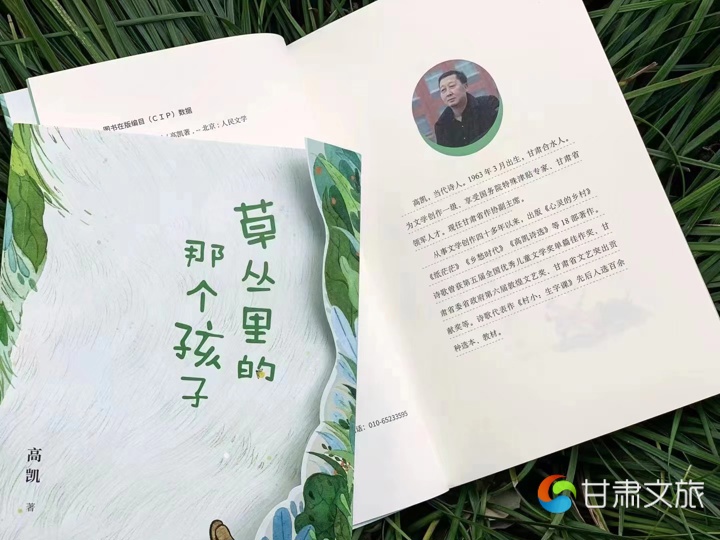 图书在版编目（CIP）数据
高凯著．--北京：人民文学
草丛里的
那个孩子
高凯
著
高凯，当代诗人。1963年3月出生，甘肃合水人。
为文学创作一级，享受国务院特殊津贴专家、甘肃省
领军人才，现任甘肃省作协副主席。
从事文学创作四十多年以来，出版《心灵的乡村》
《纸茫茫》《乡愁时代》《高凯诗选》等18部著作。
诗歌曾获第五届全国优秀儿童文学奖单篇佳作奖、甘
肃省委省政府第六届敦煌文艺奖、甘肃省文艺突出贡
献奖等。诗歌代表作《村小：生字课》先后入选百余
种选本、教材。
话：010-65233595
甘肃文旅